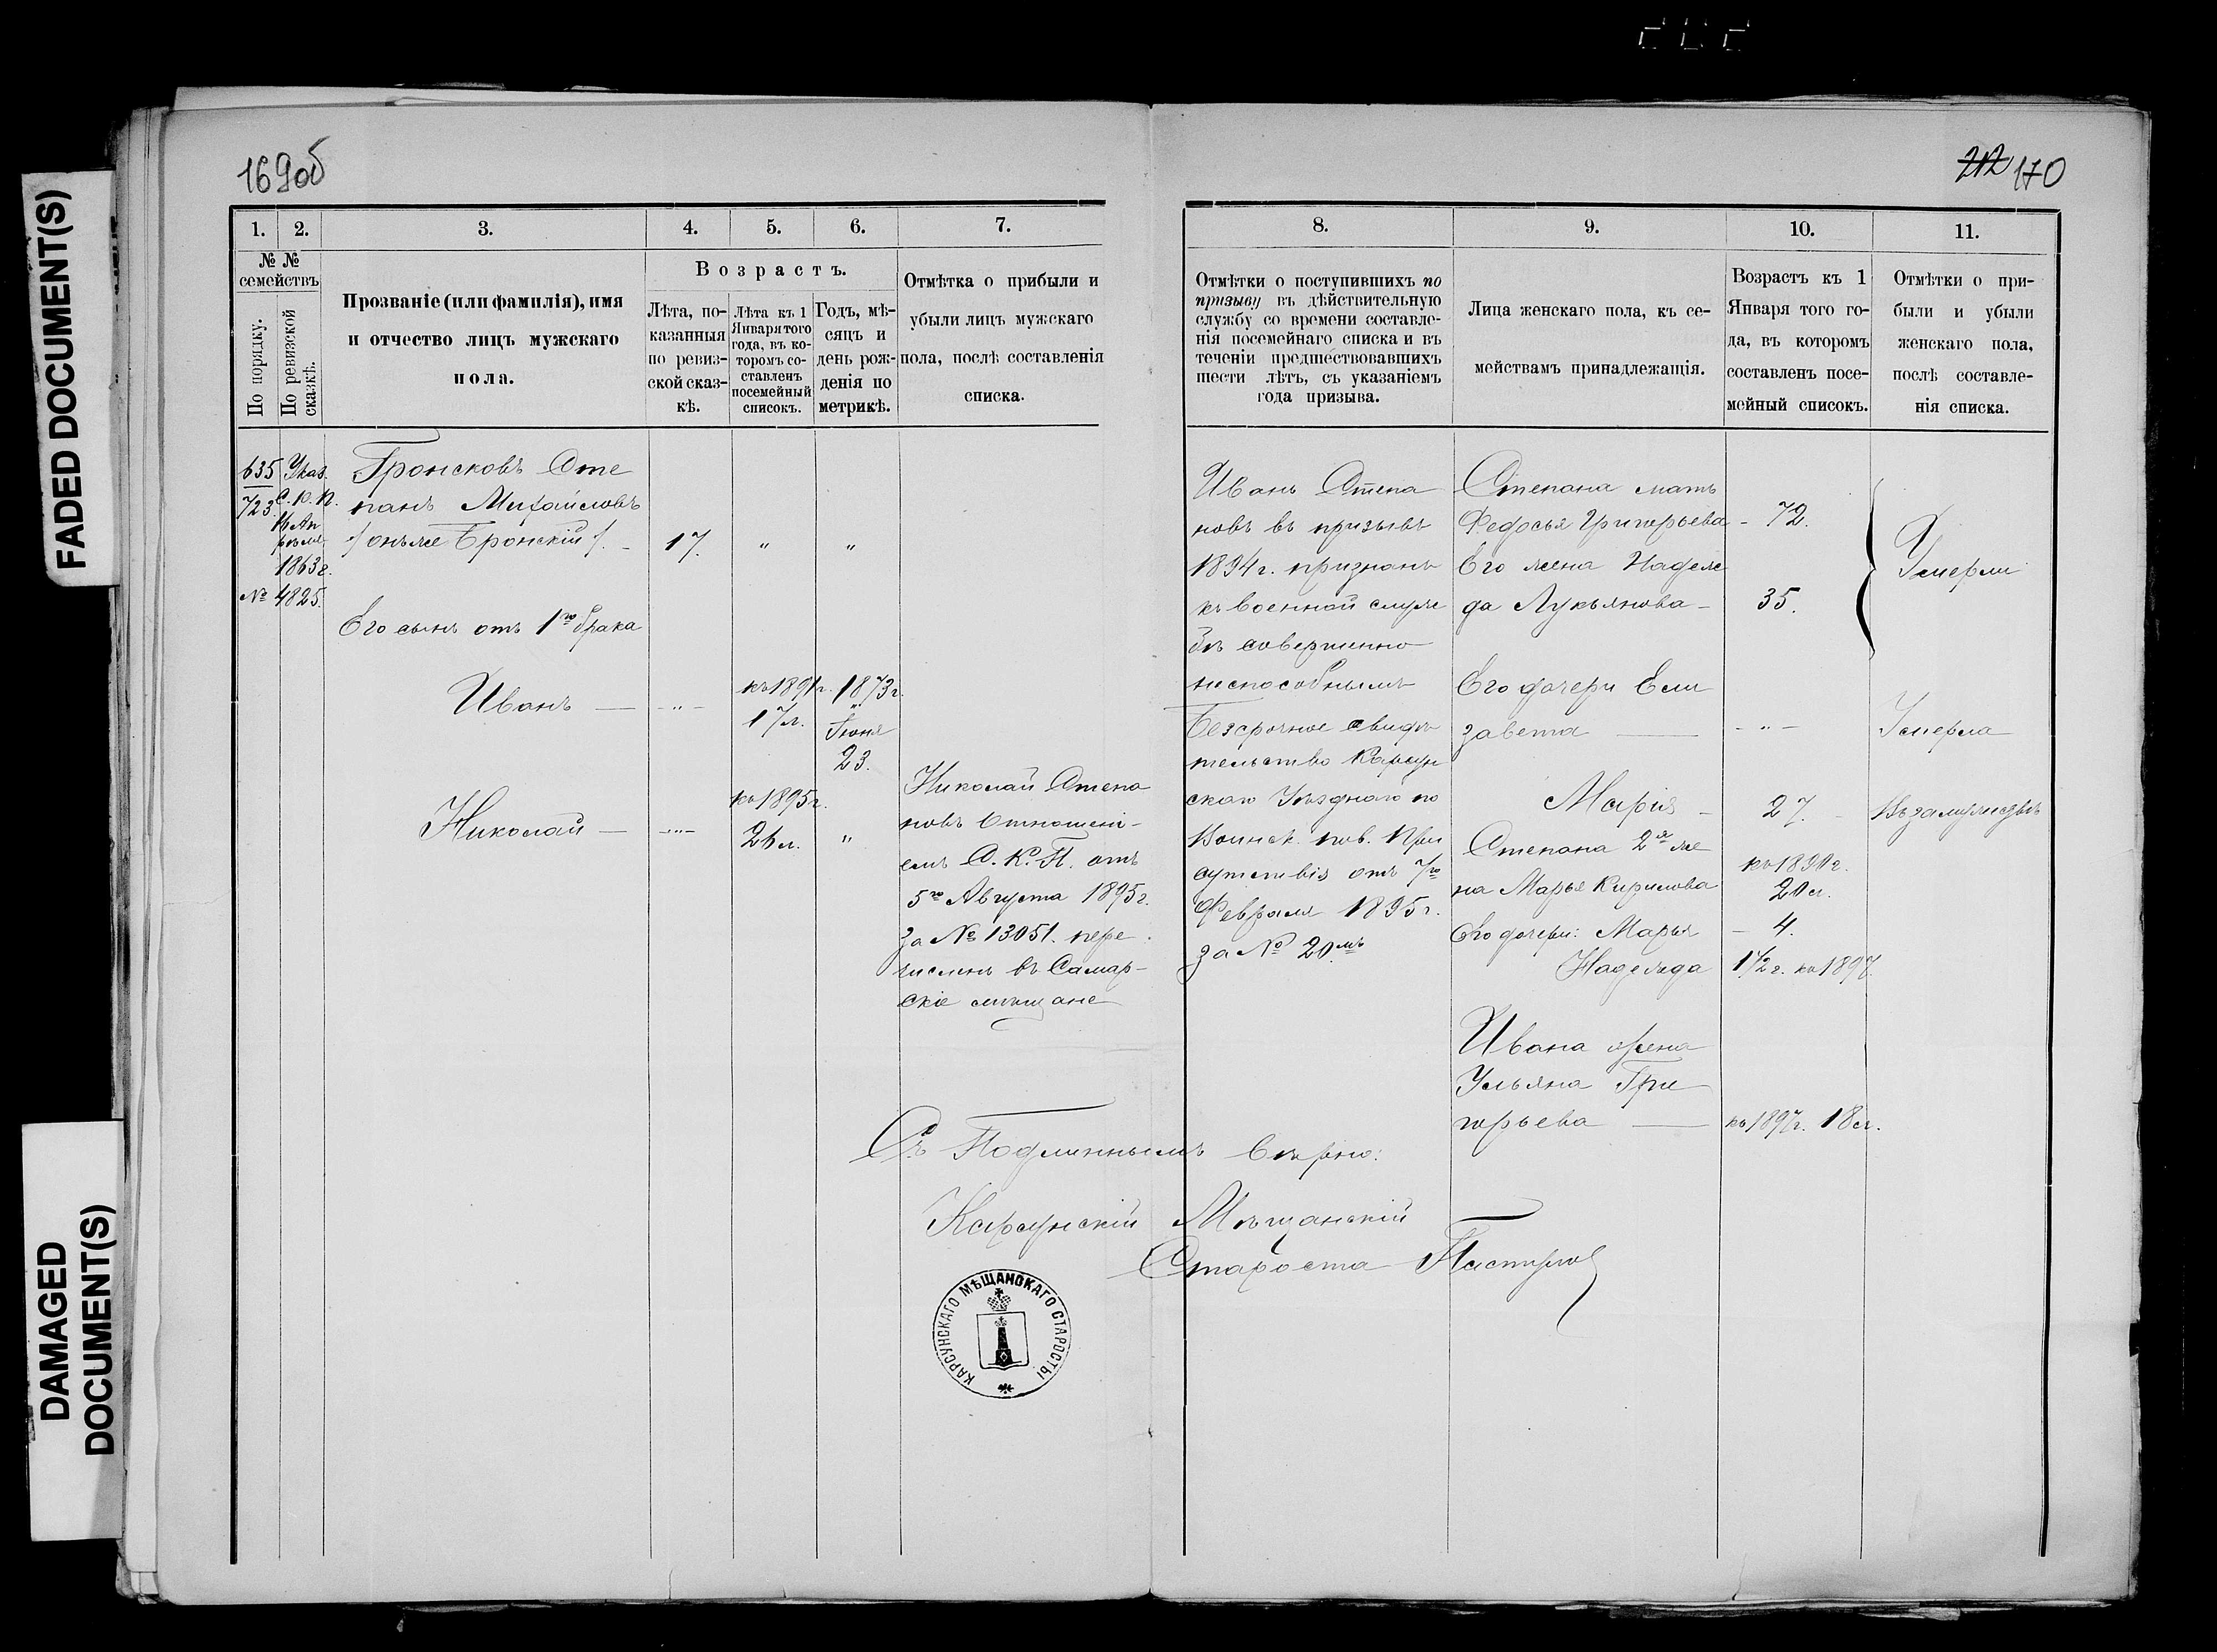 FADED DOCUMENT(S)
DAMAGED
DOCUMENT(S)
169об
1. 2. 3. 4. 5. 6. 7.
№ №
семействъ
По порядку.
По ревизской
сказкѣ.
Прозваніе (или фамилія), имя
и отчество лицъ мужскаго
пола.
Возрастъ.
Лѣта, по-
казанныя
по ревиз-
ской сказ-
кѣ.
Лѣта къ 1
Января того
года, въ ко-
торомъ со-
ставленъ
посемейный
списокъ.
Годъ, мѣ-
сяцъ и
день рож-
денія по
метрикѣ.
Отмѣтка о прибыли и
убыли лицъ мужскаго
пола, послѣ составленія
списка.
635
723.
Указ.
С. К. П.
16 Ап
рѣля
1863 г.
№ 4825.
Гронсковъ Сте
панъ Михайловъ
/ онъ же Бронскій /. 17. " "
Его сынъ отъ 1го брака
Иванъ — - " -
къ 1891 г.
17 л.
1873 г.
Іюня
23.
Николай — - " -
къ 1895 г.
26 л. "
Николай Степа
новъ Отношені-
емъ С. К. П. отъ
5го Августа 1895 г.
за № 13051. пере
численъ въ Самар-
скіе мѣщане
212 170
8. 9. 10. 11.
Отмѣтки о поступившихъ по
призыву въ дѣйствительную
службу со времени составле-
нія посемейнаго списка и въ
теченіи предшествовавшихъ
шести лѣтъ, съ указаніемъ
года призыва.
Лица женскаго пола, къ се-
мействамъ принадлежащія.
Возрастъ къ 1
Января того го-
да, въ которомъ
составленъ посе-
мейный списокъ.
Отмѣтки о при-
были и убыли
женскаго пола,
послѣ составле-
нія списка.
Иванъ Степа
новъ въ призывъ
1894 г. признанъ
къ военной служ
бѣ совершенно
неспособнымъ
Безсрочное свидѣ
тельство Карсун
скаго Уѣзднаго по
Воинск. пов. При
сутствія отъ 7го
Февраля 1895 г.
за № 20.мъ
Степана мать
Федосья Григорьева - 72.
Его жена Надеж
да Лукьянова - 35.
Умерли
Его дочери Ели
завета — - " - Умерла
Марія - 27. - Въ замужествѣ
Степана 2я же
на Марья Кирилова
къ 1890 г.
20 л.
Его дочери: Марья - 4.
Надежда 1 1/2 г. къ 1897.
Ивана жена
Ульяна Гри
горьева — къ 1897 г. 18 л.
Съ Подлиннымъ Вѣрно:
Карсунскій Мѣщанскій
Староста
КАРСУНСКАГО МѢЩАНСКАГО СТАРОСТЫ